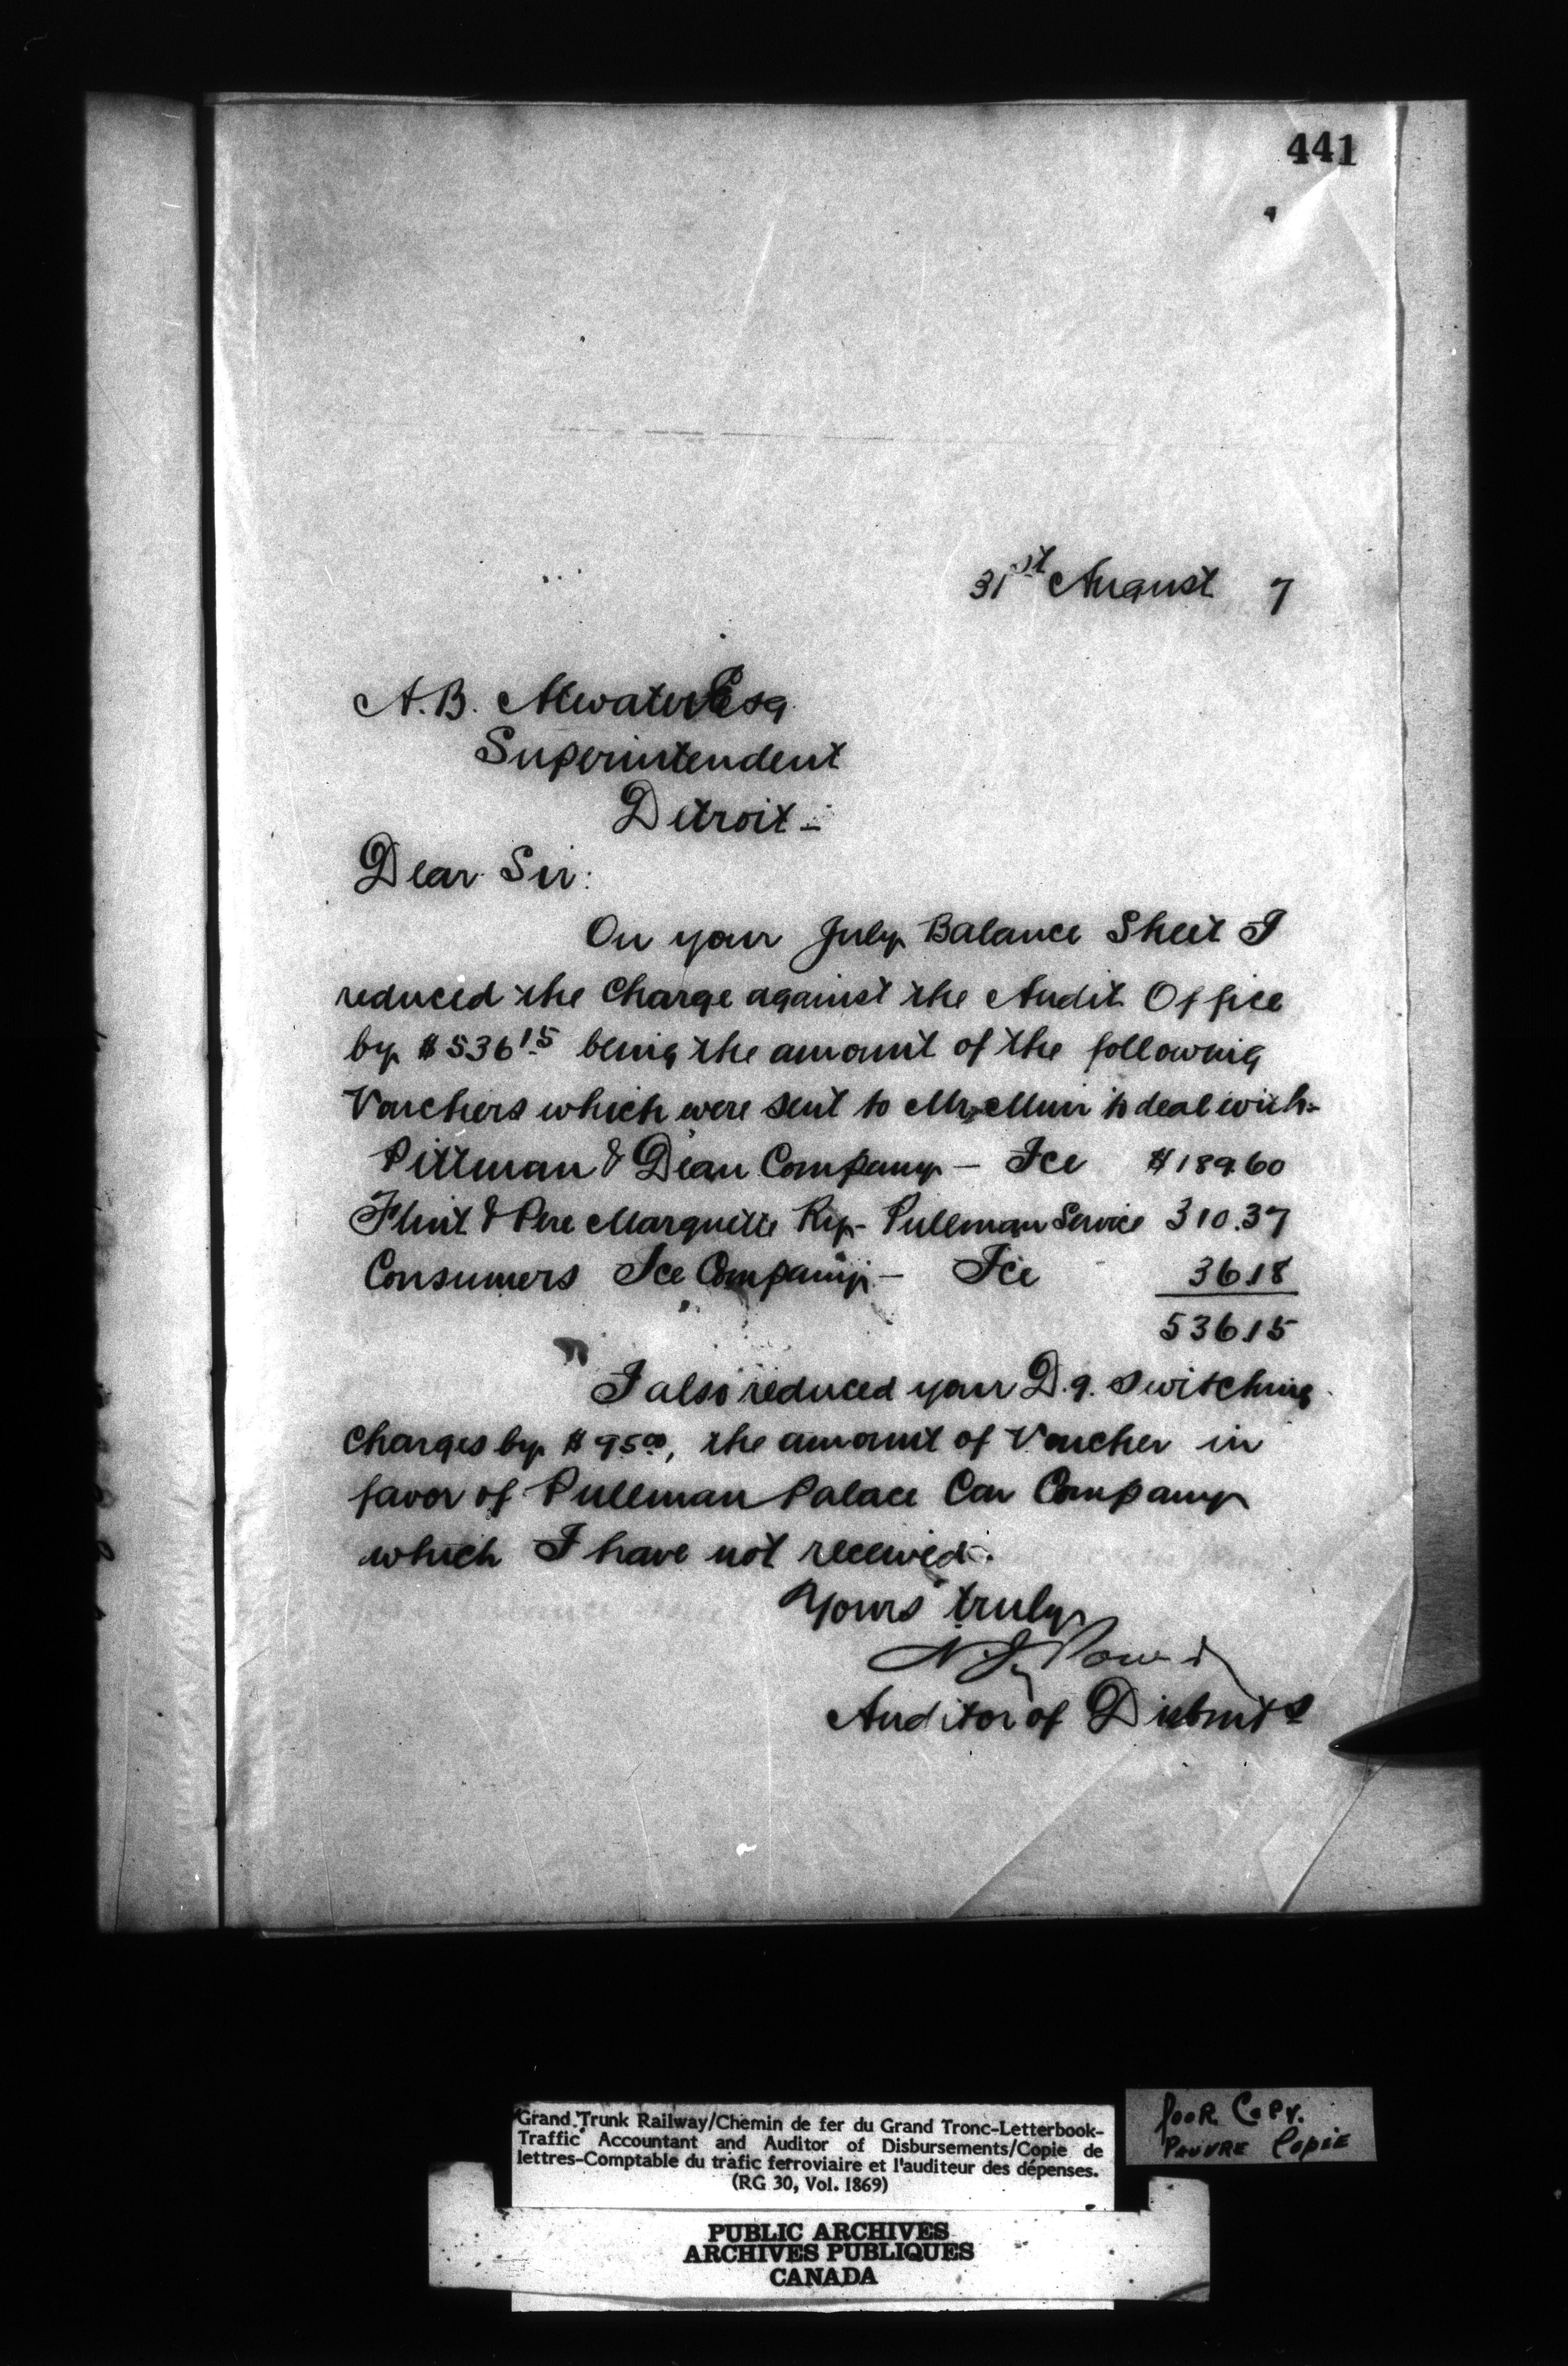 441
31st August 7
A. B. Atwater Esq
Superintendent
Detroit -
Dear Sir:
On your July Balance Sheet I
reduced the Charge against the Audit Office
by $536 15 being the amount of the following
Vouchers which were sent to Mr Muir to deal with:-
Pittman & Dean Company - Ice $189.60
Flint & Pere Marquette Ry - Pullman Service 310.37
Consumers Ice Company - Ice 36.18
536.15
I also reduced your D.9. Switching
Charges by $95 00, the amount of Voucher in
favor of Pullman Palace Car Company
which I have not received.
Yours truly
Auditor of Disbmts
Grand Trunk Railway/Chemin de fer du Grand Tronc-Letterbook-
Traffic Accountant and Auditor of Disbursements/Copie de
lettres-Comptable du trafic ferroviaire et l'auditeur des dépenses.
(RG 30, Vol. 1869)
POOR COPY.
PAUVRE COPIE
PUBLIC ARCHIVES
ARCHIVES PUBLIQUES
CANADA